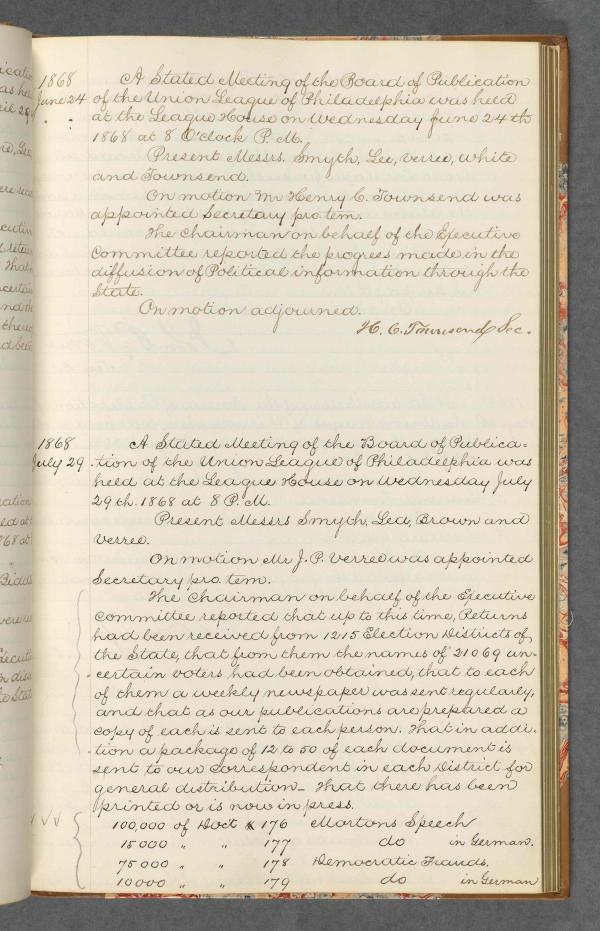 1868
June 24
A Stated Meeting of the Board of Publication
of the Union League of Philadelphia was held
at the League House on Wednesday June 24th
1868 at 8 O'clock P.M.
Present Messrs. Smyth, Lea, Verree, White
and Townsend.
On motion Mr Henry C. Townsend was
appointed Secretary pro. tem.
The Chairman on behalf of the Executive
Committee reported the progress made in the
diffusion of Political information through the
State.
On motion adjourned.
H. C. Townsend Sec.
1868
July 29
A Stated Meeting of the Board of Publica-
-tion of the Union League of Philadelphia was
held at the League House on Wednesday July
29th. 1868 at 8 P.M.
Present Messrs Smyth, Lea, Brown and
Verree.
On motion Mr J. P. Verree was appointed
Secretary pro. tem.
The Chairman on behalf of the Executive
Committee reported that up to this time, Returns
had been received from 1215 Election Districts of
the State, that from them the names of 21069 un-
-certain voters had been obtained, that to each
of them a weekly newspaper was sent regularly,
and that as our publications are prepared a
copy of each is sent to each person. That in addi-
-tion a package of 12 to 50 of each document is
sent to our Correspondent in each District for
general distribution - That there has been
printed or is now in press.
100,000 of Doct 176 Mortons Speech
15000 " " 177 do in German.
75000 " " 178 Democratic Frauds.
10000 " " 179 do in German